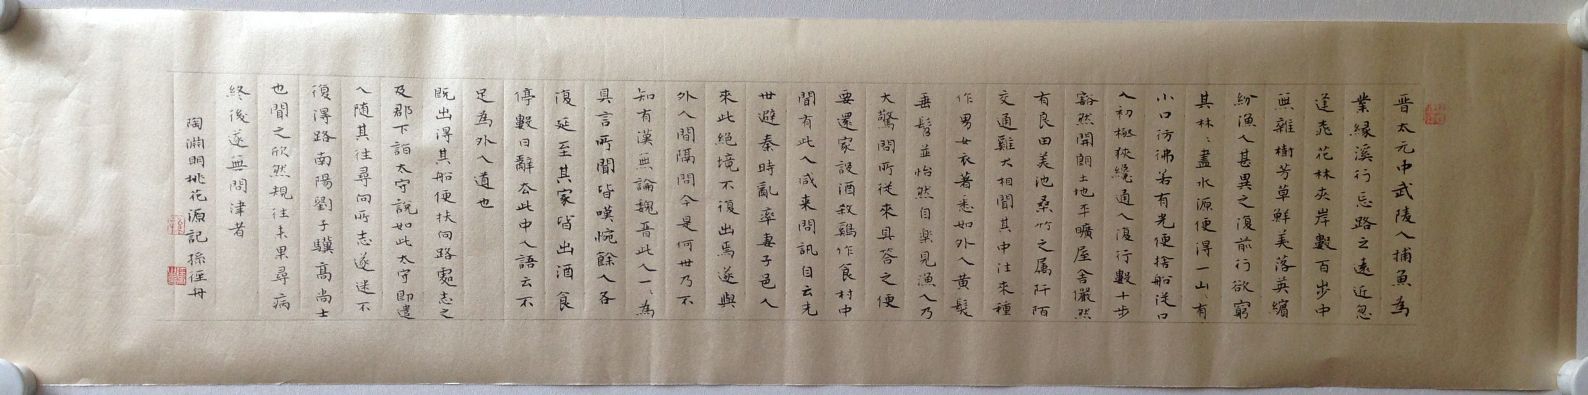 晉太元中武陵人捕魚為
業緣溪行忘路之遠近忽
逢桃花林夾岸數百步中
無雜樹芳草鮮美落英繽
紛漁人甚異之復前行欲窮
其林〻盡水源便得一山〻有
小口仿彿若有光便捨船從口
入初極狹纔通人復行數十步
豁然開朗土地平曠屋舍儼然
有良田美池桑竹之属阡陌
交通雞犬相聞其中往來種
作男女衣著悉如外人黄髮
垂髫並怡然自樂見漁人乃
大驚問所從來具答之便
要還家設酒殺鷄作食村中
聞有此人咸来問訊自云先
世避秦時亂率妻子邑人
來此絕境不復出焉遂與
外人間隔問今是何世乃不
知有漢無論魏晉此人一〻為
具言所聞皆嘆惋餘人各
復延至其家皆出酒食
停數日辭去此中人語云不
足為外人道也
既出得其船便扶向路處志之
及郡下詣太守説如此太守即遣
人随其往尋向所志遂迷不
復得路南陽劉子驥高尚士
也聞之欣然規往未果尋病
終後遂無問津者
陶淵明桃花源記孫徑舟